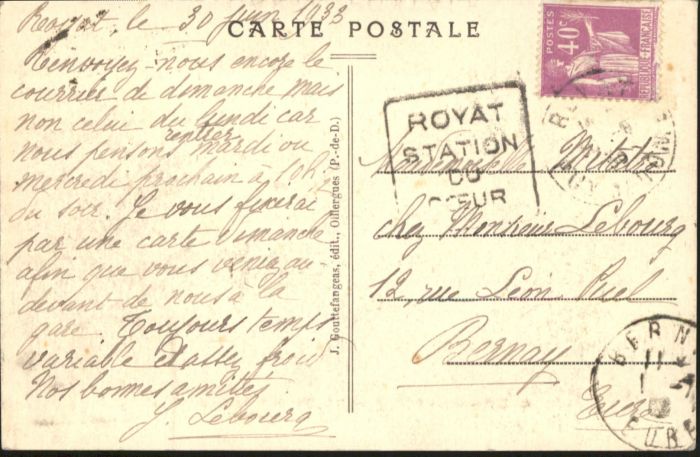 Royat, le 30 Juin 1933
CARTE POSTALE
Renvoyez-nous encore le
courrier de dimanche mais
non celui du lundi car
nous pensons rentrer mardi ou
mercredi prochain à 10h
du soir. Je vous fixerai
par une carte dimanche
afin que vous veniez au-
devant de nous à la
gare. Toujours temps
variable et assez froid
Nos bonnes amitiés
J. Lebourg
J. Gouttefangeas, édit., Olliergues (P.-de-D.)
POSTES
40c
REPUBLIQUE-FRANÇAISE
ROYAT
STATION
DU
CŒUR
Mademoiselle
chez Monsieur Lebourg
12, rue Léon
Bernay
Eure
BERNAY
11
EURE